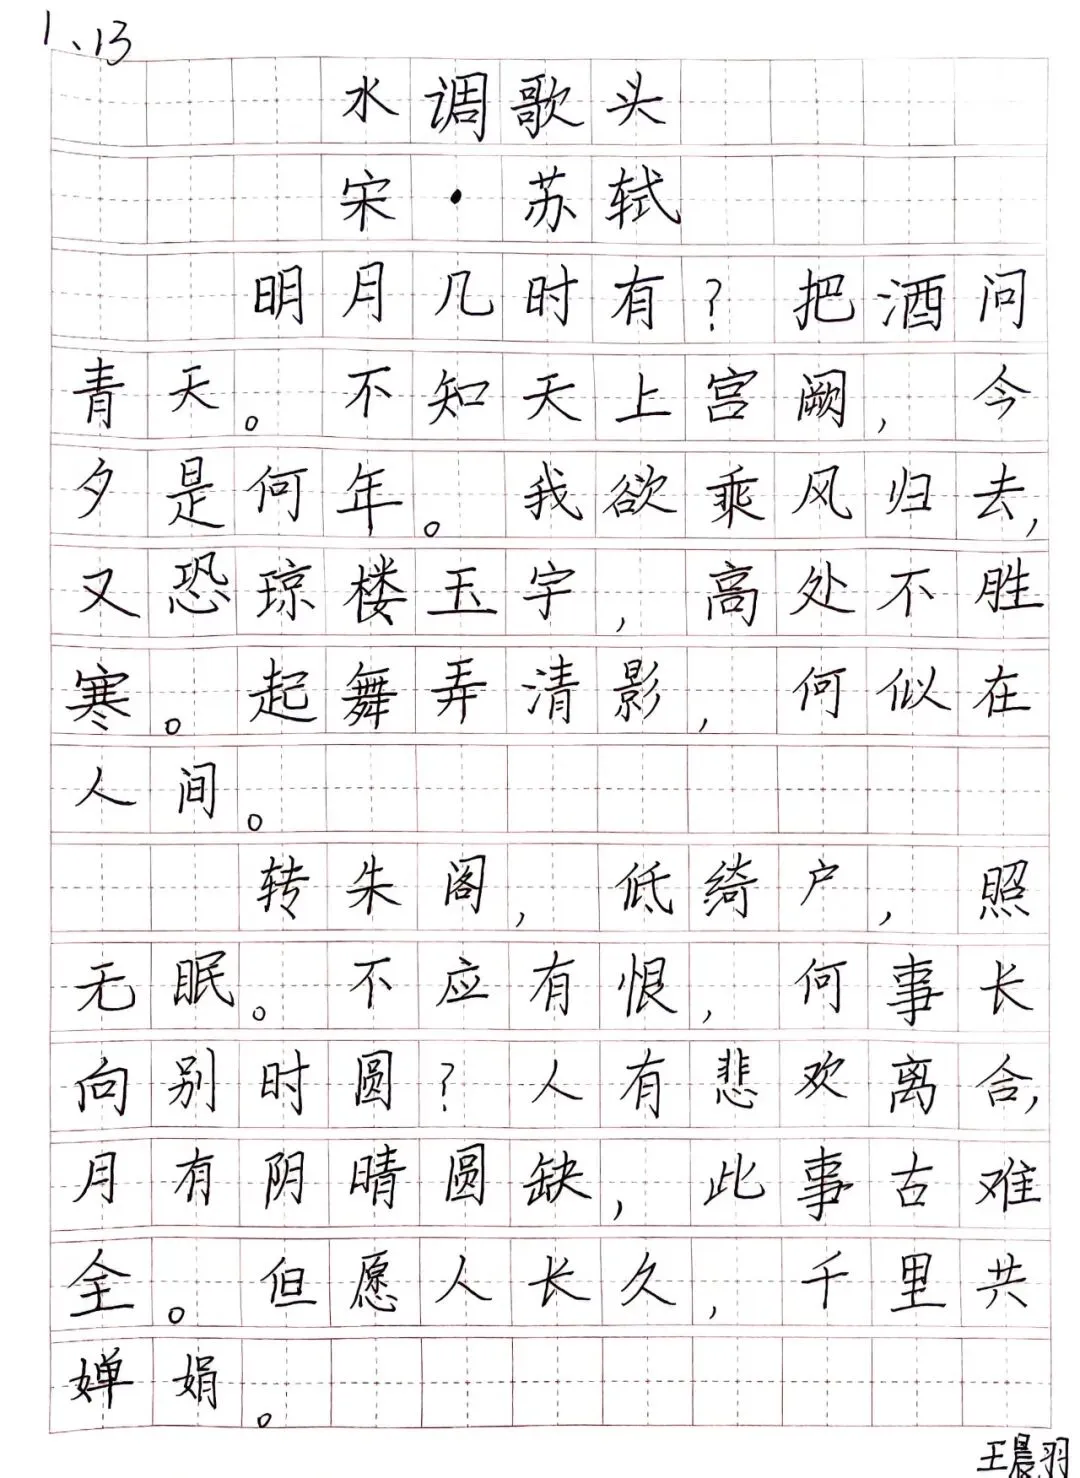 1、13
水调歌头
宋·苏轼
明月几时有?把酒问
青天。不知天上宫阙,今
夕是何年。我欲乘风归去,
又恐琼楼玉宇,高处不胜
寒。起舞弄清影,何似在
人间。
转朱阁,低绮户,照
无眠。不应有恨,何事长
向别时圆?人有悲欢离合,
月有阴晴圆缺,此事古难
全。但愿人长久,千里共
婵娟。
王晨羽